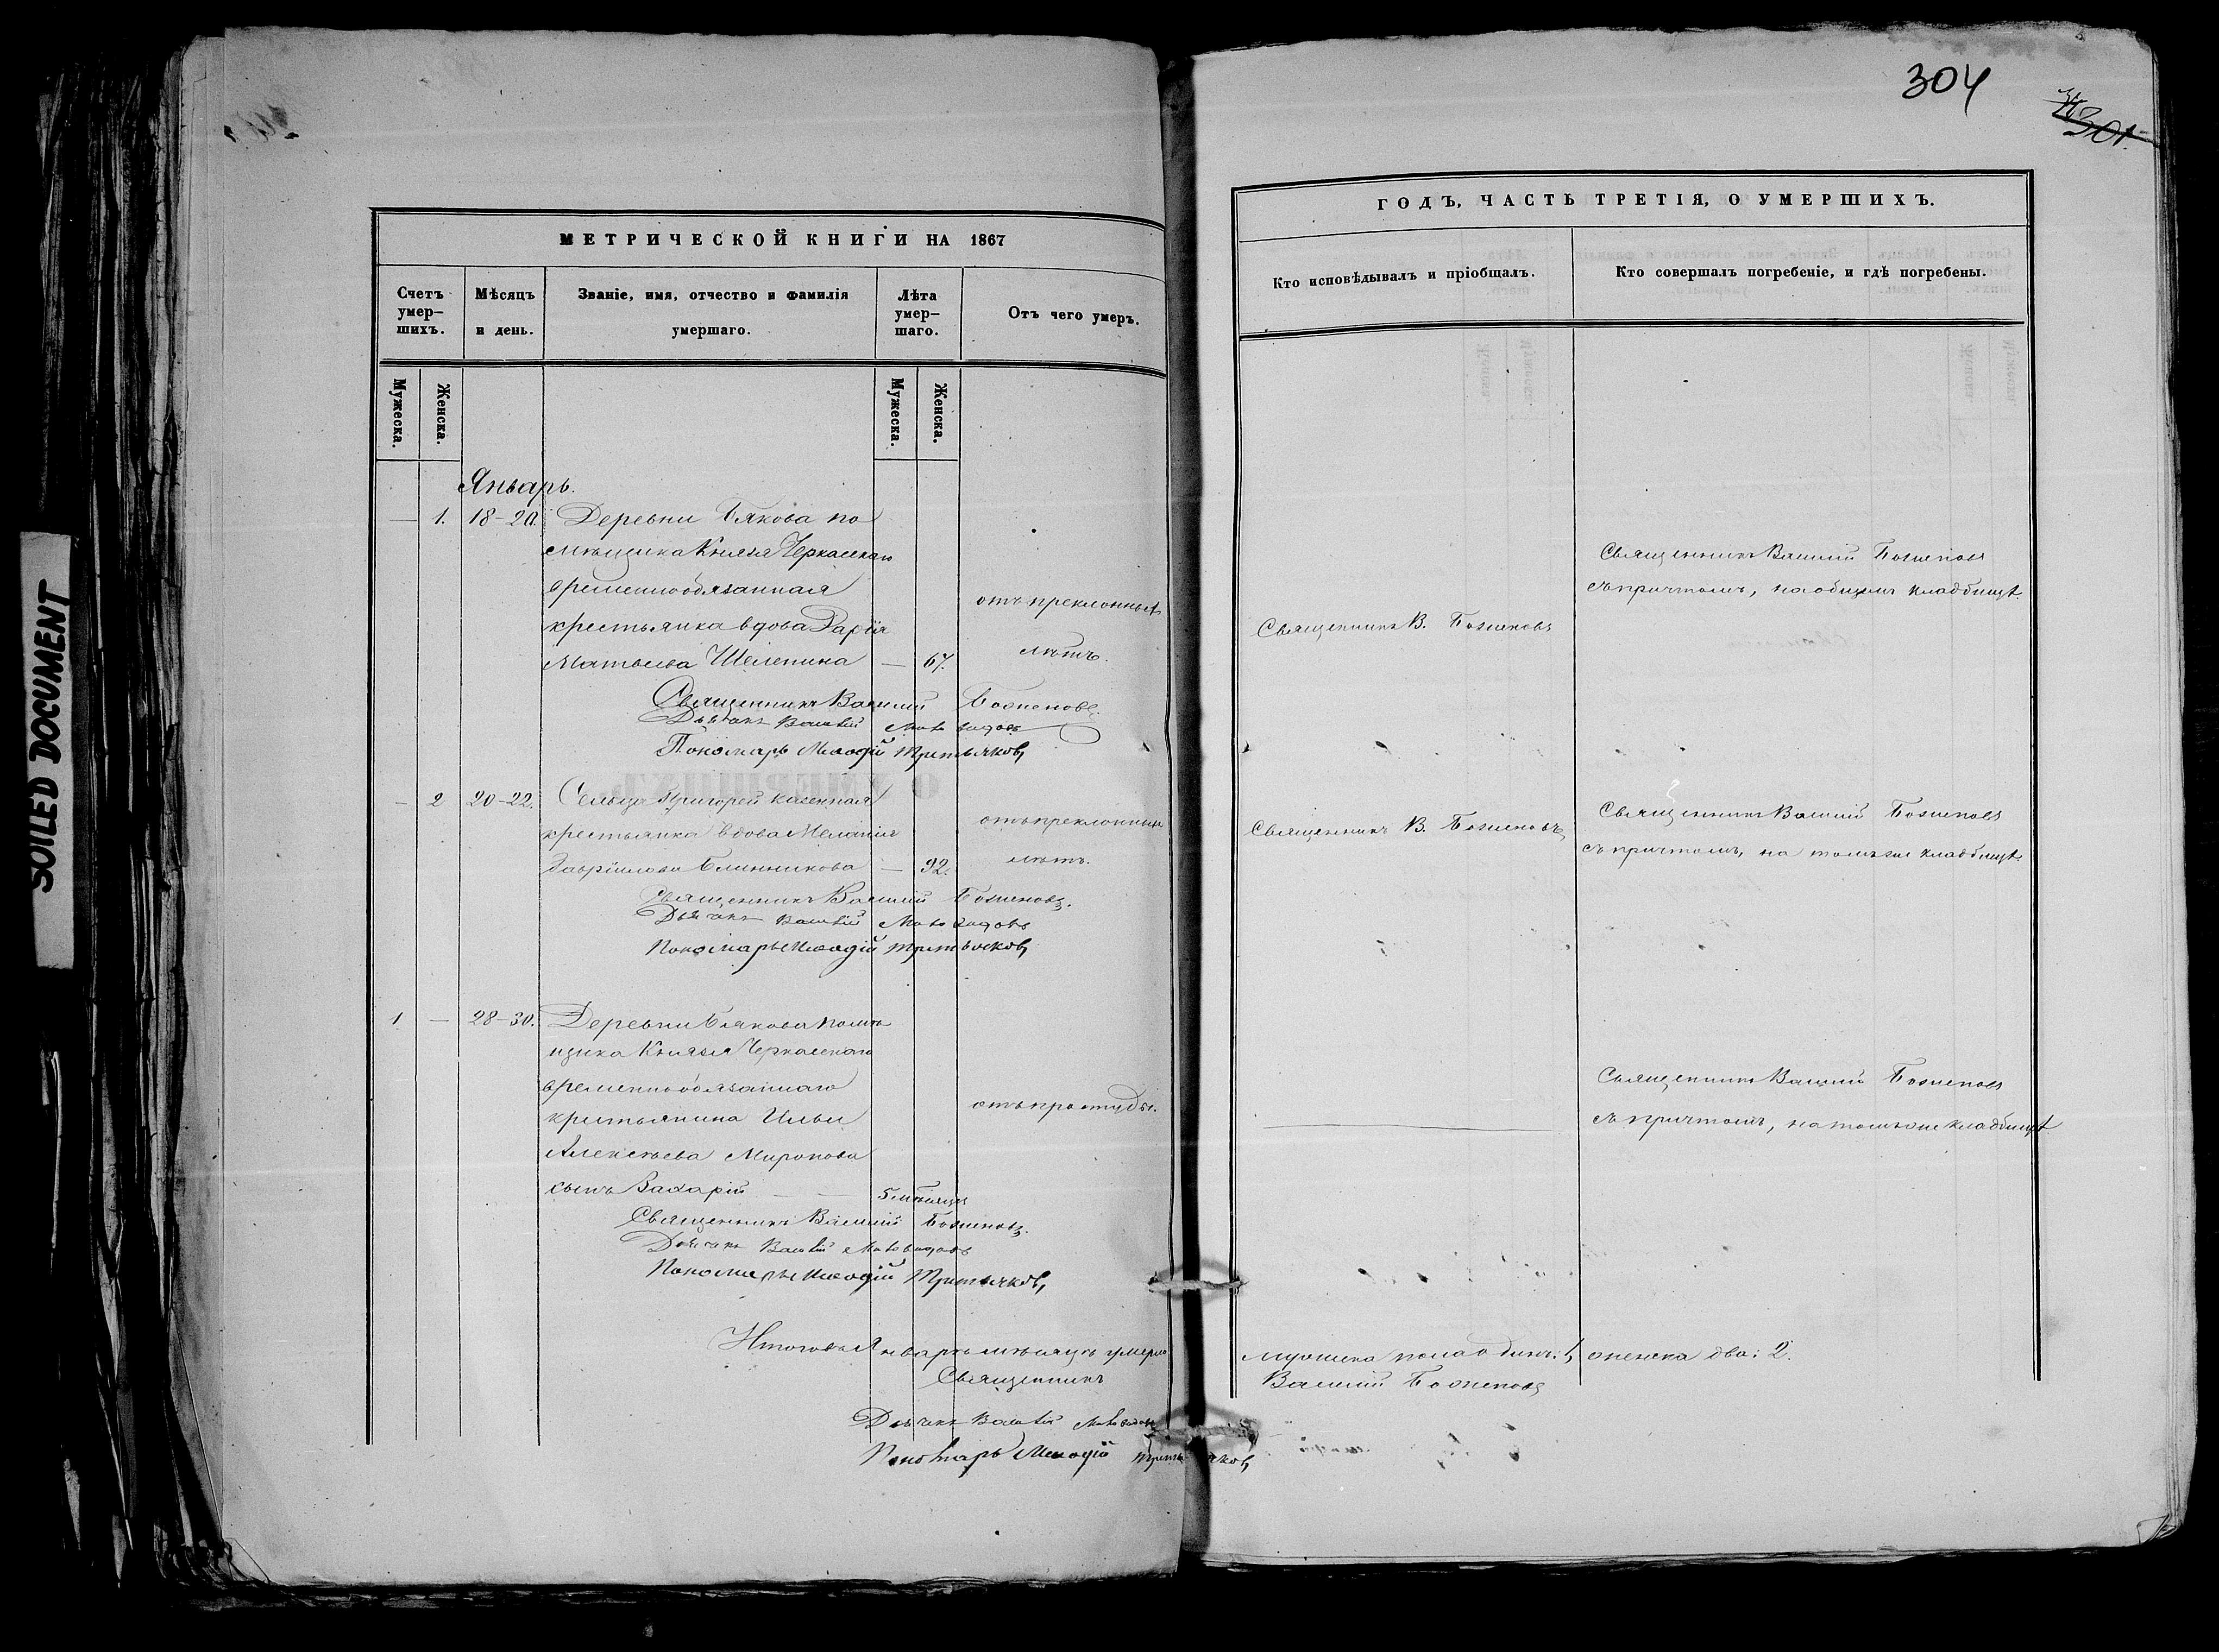 SOILED DOCUMENT
304
301.
МЕТРИЧЕСКОЙ КНИГИ НА 1867
Счетъ умер-шихъ.
Мѣсяцъ и день.
Званіе, имя, отчество и фамилія умершаго.
Лѣта умер-шаго.
Отъ чего умеръ.
Мужеска.
Женска.
Мужеска.
Женска.
Январь.
— 1. 18-20. Деревни Бякова по
мѣщика Князя Черкаскаго
временнообязанная
крестьянка вдова Дарія
Матвѣева Шелепина — 67.
отъ преклонныхъ
лѣтъ.
Священникъ Василій Боженовъ.
Дьячекъ Василій
Пономарь Меѳодій Третьяковъ
— 2 20-22. Сельца Григорей казенная
крестьянка вдова Меланія
Гавріилова Блинникова — 92.
отъ преклонныхъ
лѣтъ.
Священникъ Василій Боженовъ.
Дьячекъ Василій
Пономарь Меѳодій Третьяковъ
1 — 28-30. Деревни Бякова помѣ
щика Князя Черкаскаго
временнообязаннаго
крестьянина Ильи
Алексѣева Миронова
сынъ Захарій — — 5 мѣсяцъ
отъ простуды.
Священникъ Василій Боженовъ.
Дьячекъ Василій
Пономарь Меѳодій Третьяковъ
Итого въ Январѣ мѣсяцѣ умерло
Священникъ
Дьячекъ Василій
Пономарь Меѳодій Третьяковъ
ГОДЪ, ЧАСТЬ ТРЕТІЯ, О УМЕРШИХЪ.
Кто исповѣдывалъ и пріобщалъ.
Кто совершалъ погребеніе, и гдѣ погребены.
Священникъ В. Боженовъ
Священникъ Василій Боженовъ
съ причтомъ, на общемъ кладбищѣ.
Священникъ В. Боженовъ
Священникъ Василій Боженовъ
съ причтомъ, на томъ же кладбищѣ
Священникъ Василій Боженовъ
съ причтомъ, на томъ же кладбищѣ
мужеска пола одинъ: 1, женска два: 2.
Василій Боженовъ